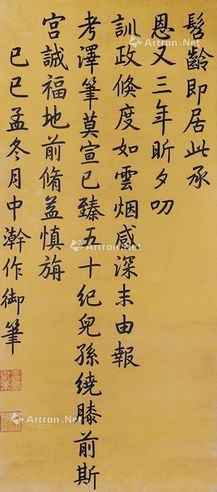 髫齡即居此承
恩又三年昕夕叨
訓政倏度如雲烟感深未由報
考澤筆莫宣已臻五十紀兒孫繞膝前斯
宮誠福地前脩益慎旃
己巳孟冬月中澣作御筆
Artron.Net
Artron.Net
Artron.Net
Artron.Net